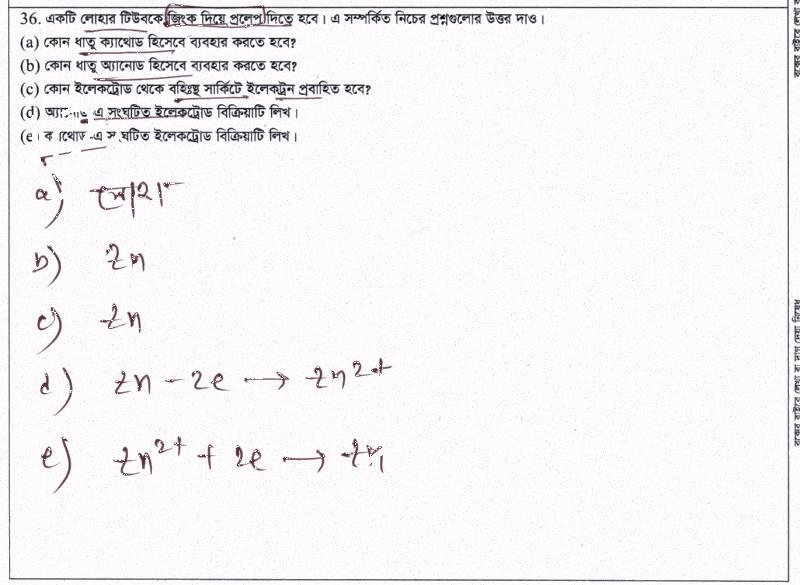 36. একটি লোহার টিউবকে জিংক দিয়ে প্রলেপ দিতে হবে। এ সম্পর্কিত নিচের প্রশ্নগুলোর উত্তর দাও।
(a) কোন ধাতু ক্যাথোড হিসেবে ব্যবহার করতে হবে?
(b) কোন ধাতু অ্যানোড হিসেবে ব্যবহার করতে হবে?
(c) কোন ইলেকট্রোড থেকে বহিঃস্থ সার্কিটে ইলেকট্রন প্রবাহিত হবে?
(d) এ সংঘটিত ইলেকট্রোড বিক্রিয়াটি লিখ।
(e) ইলেকট্রোড বিক্রিয়াটি লিখ।
a) লোহা
b) Zn
c) Zn
d) Zn - 2e → Zn²⁺
e) Zn²⁺ + 2e → Zn